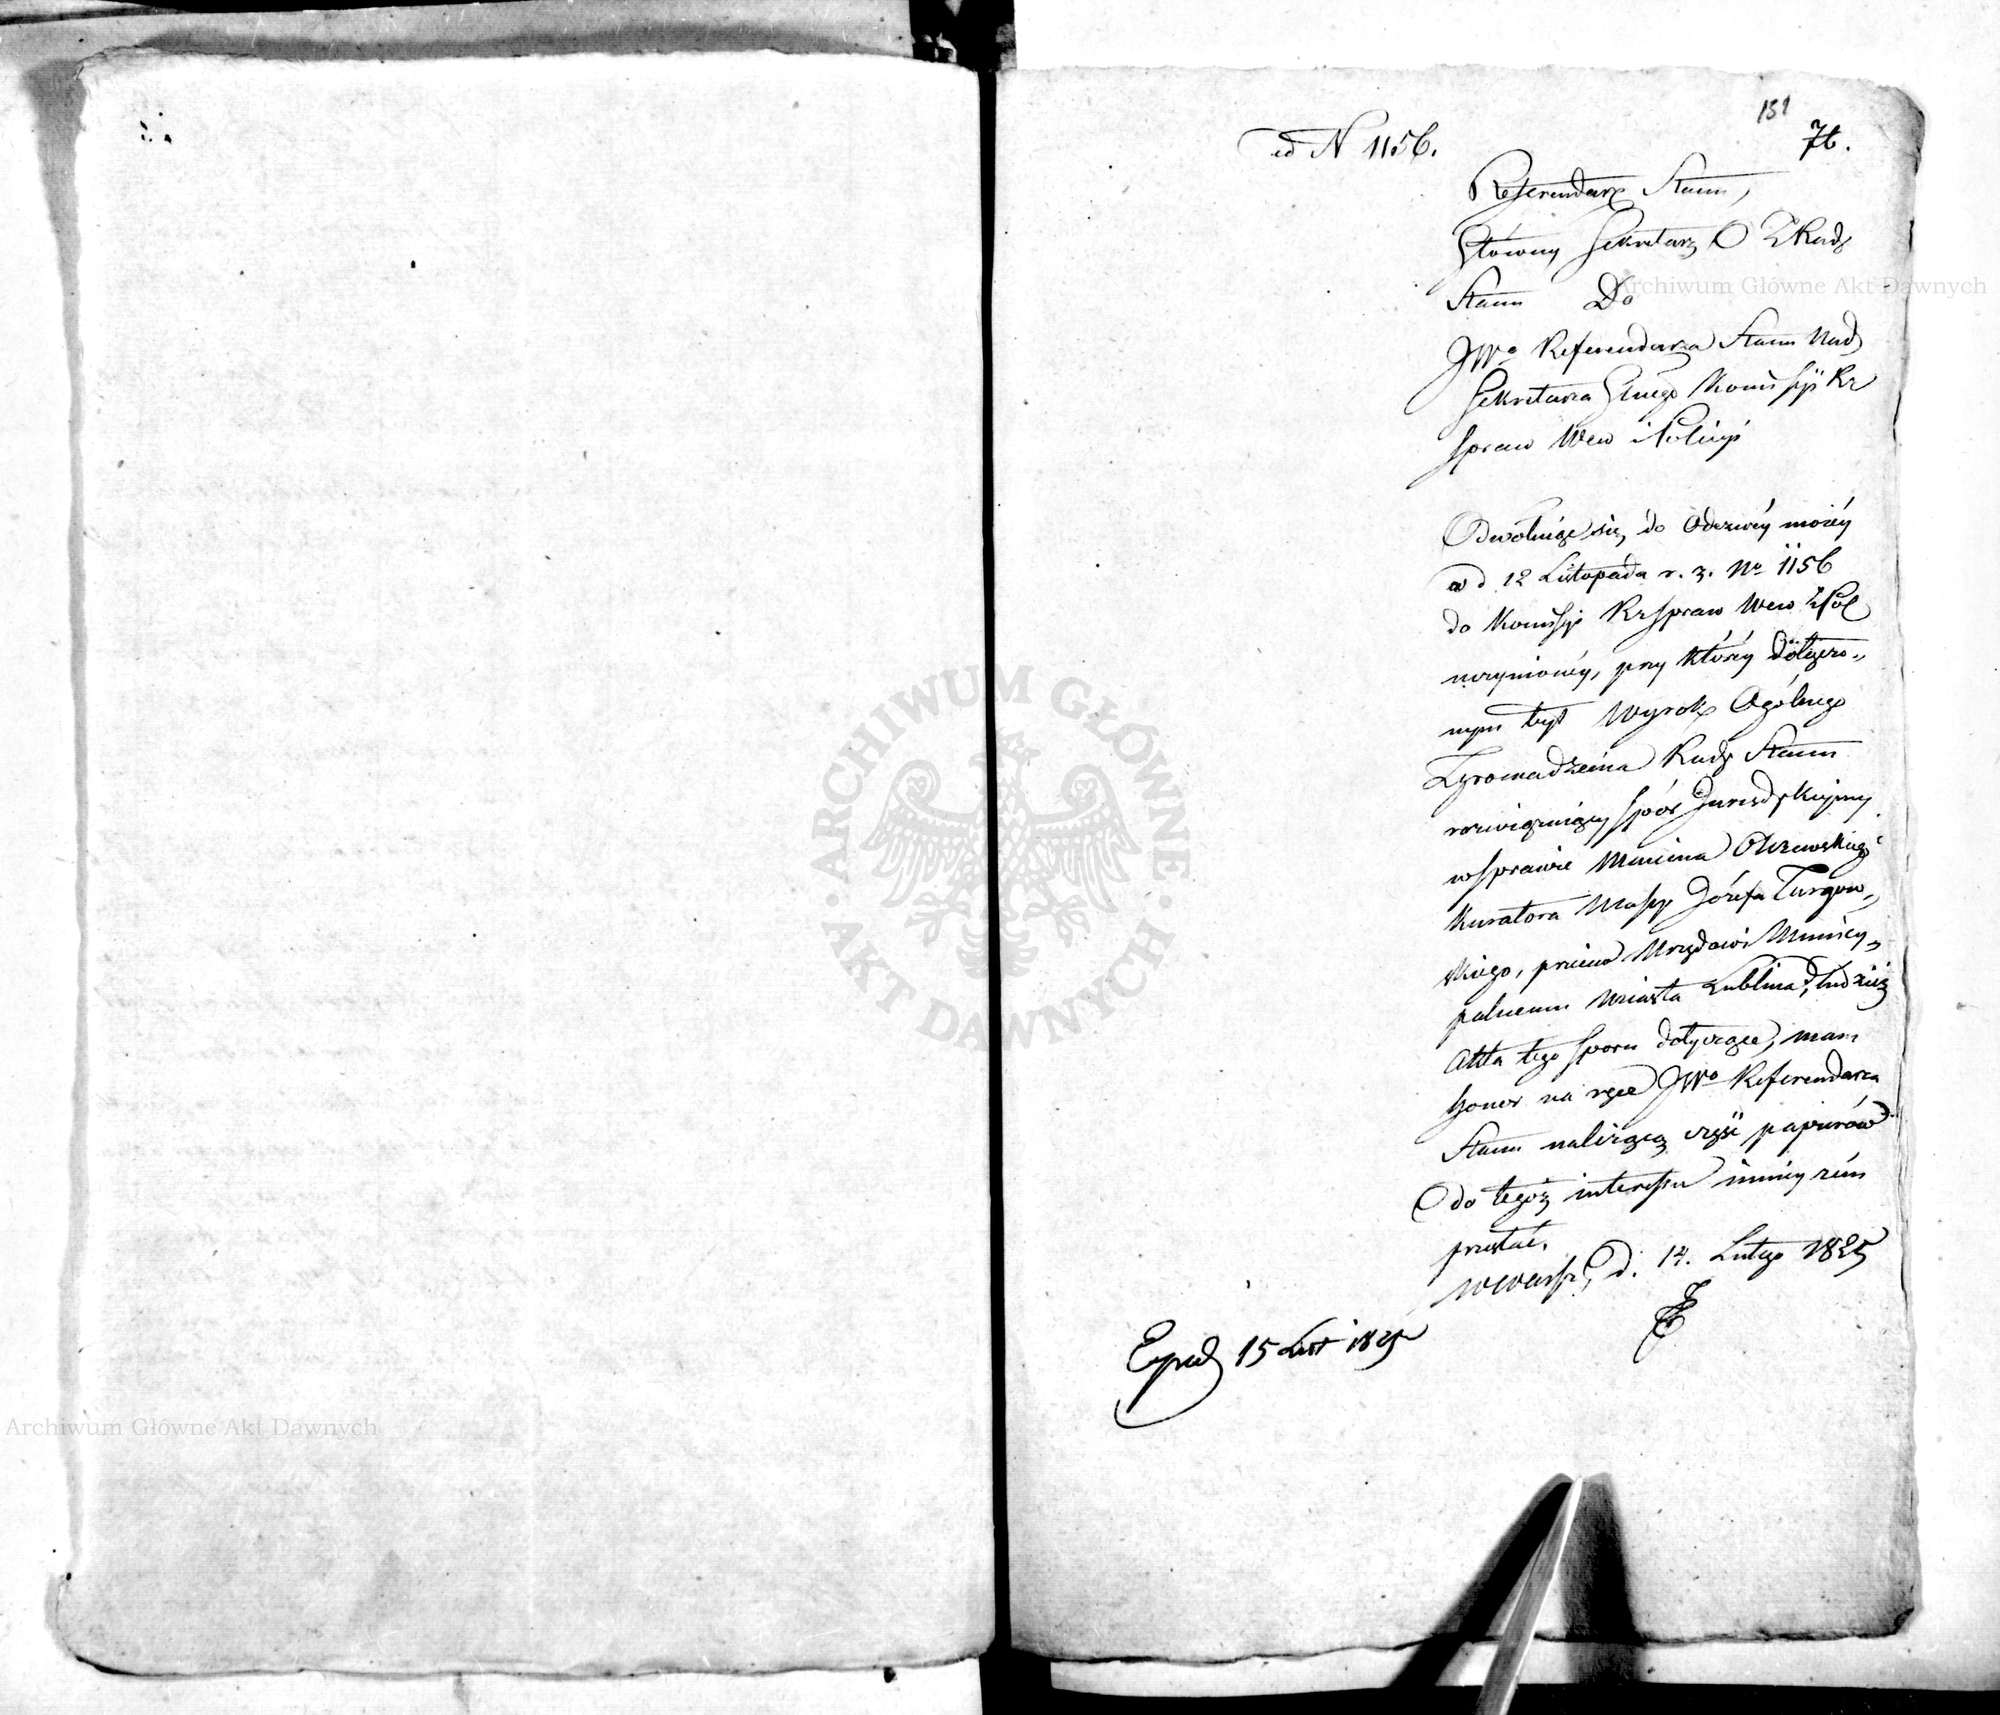 131
76.
ad N 1156.
Referendarz Stanu,
Główny Sekretarz O Z Rady
Stanu Do
JWo Referendarza Stanu Nadz
Sekretarza Głnego Komissyi Rz
Spraw Wew i Policyi
Odwołuiąc się do Odezwéy moiéy
z d 12 Listopada r. z. Nr 1156
do Komissyi Rz Spraw Wew i Pol
uczynionéy, przy któréy dołączo„
nym był Wyrok Ogólnego
Zgromadzenia Rady Stanu
rozwiązuiący spór Jurisdykcyiny
w sprawie Marcina Olszewskiego
Kuratora Massy Józefa Turgow„
skiego, przeciw Urzędowi Municy„
palnemu Miasta Lublina, tudzież
Akta tego sporu dotyczące, mam
honor na ręce JWo Referendarza
Stanu należącą część papierów
do tegoż interessu ninieyszém
przesłać.
w Warsz. d. 14. Lutego 1825
Exped 15 Lut 1825
Archiwum Główne Akt Dawnych
ARCHIWUM GŁÓWNE AKT DAWNYCH
Archiwum Główne Akt Dawnych